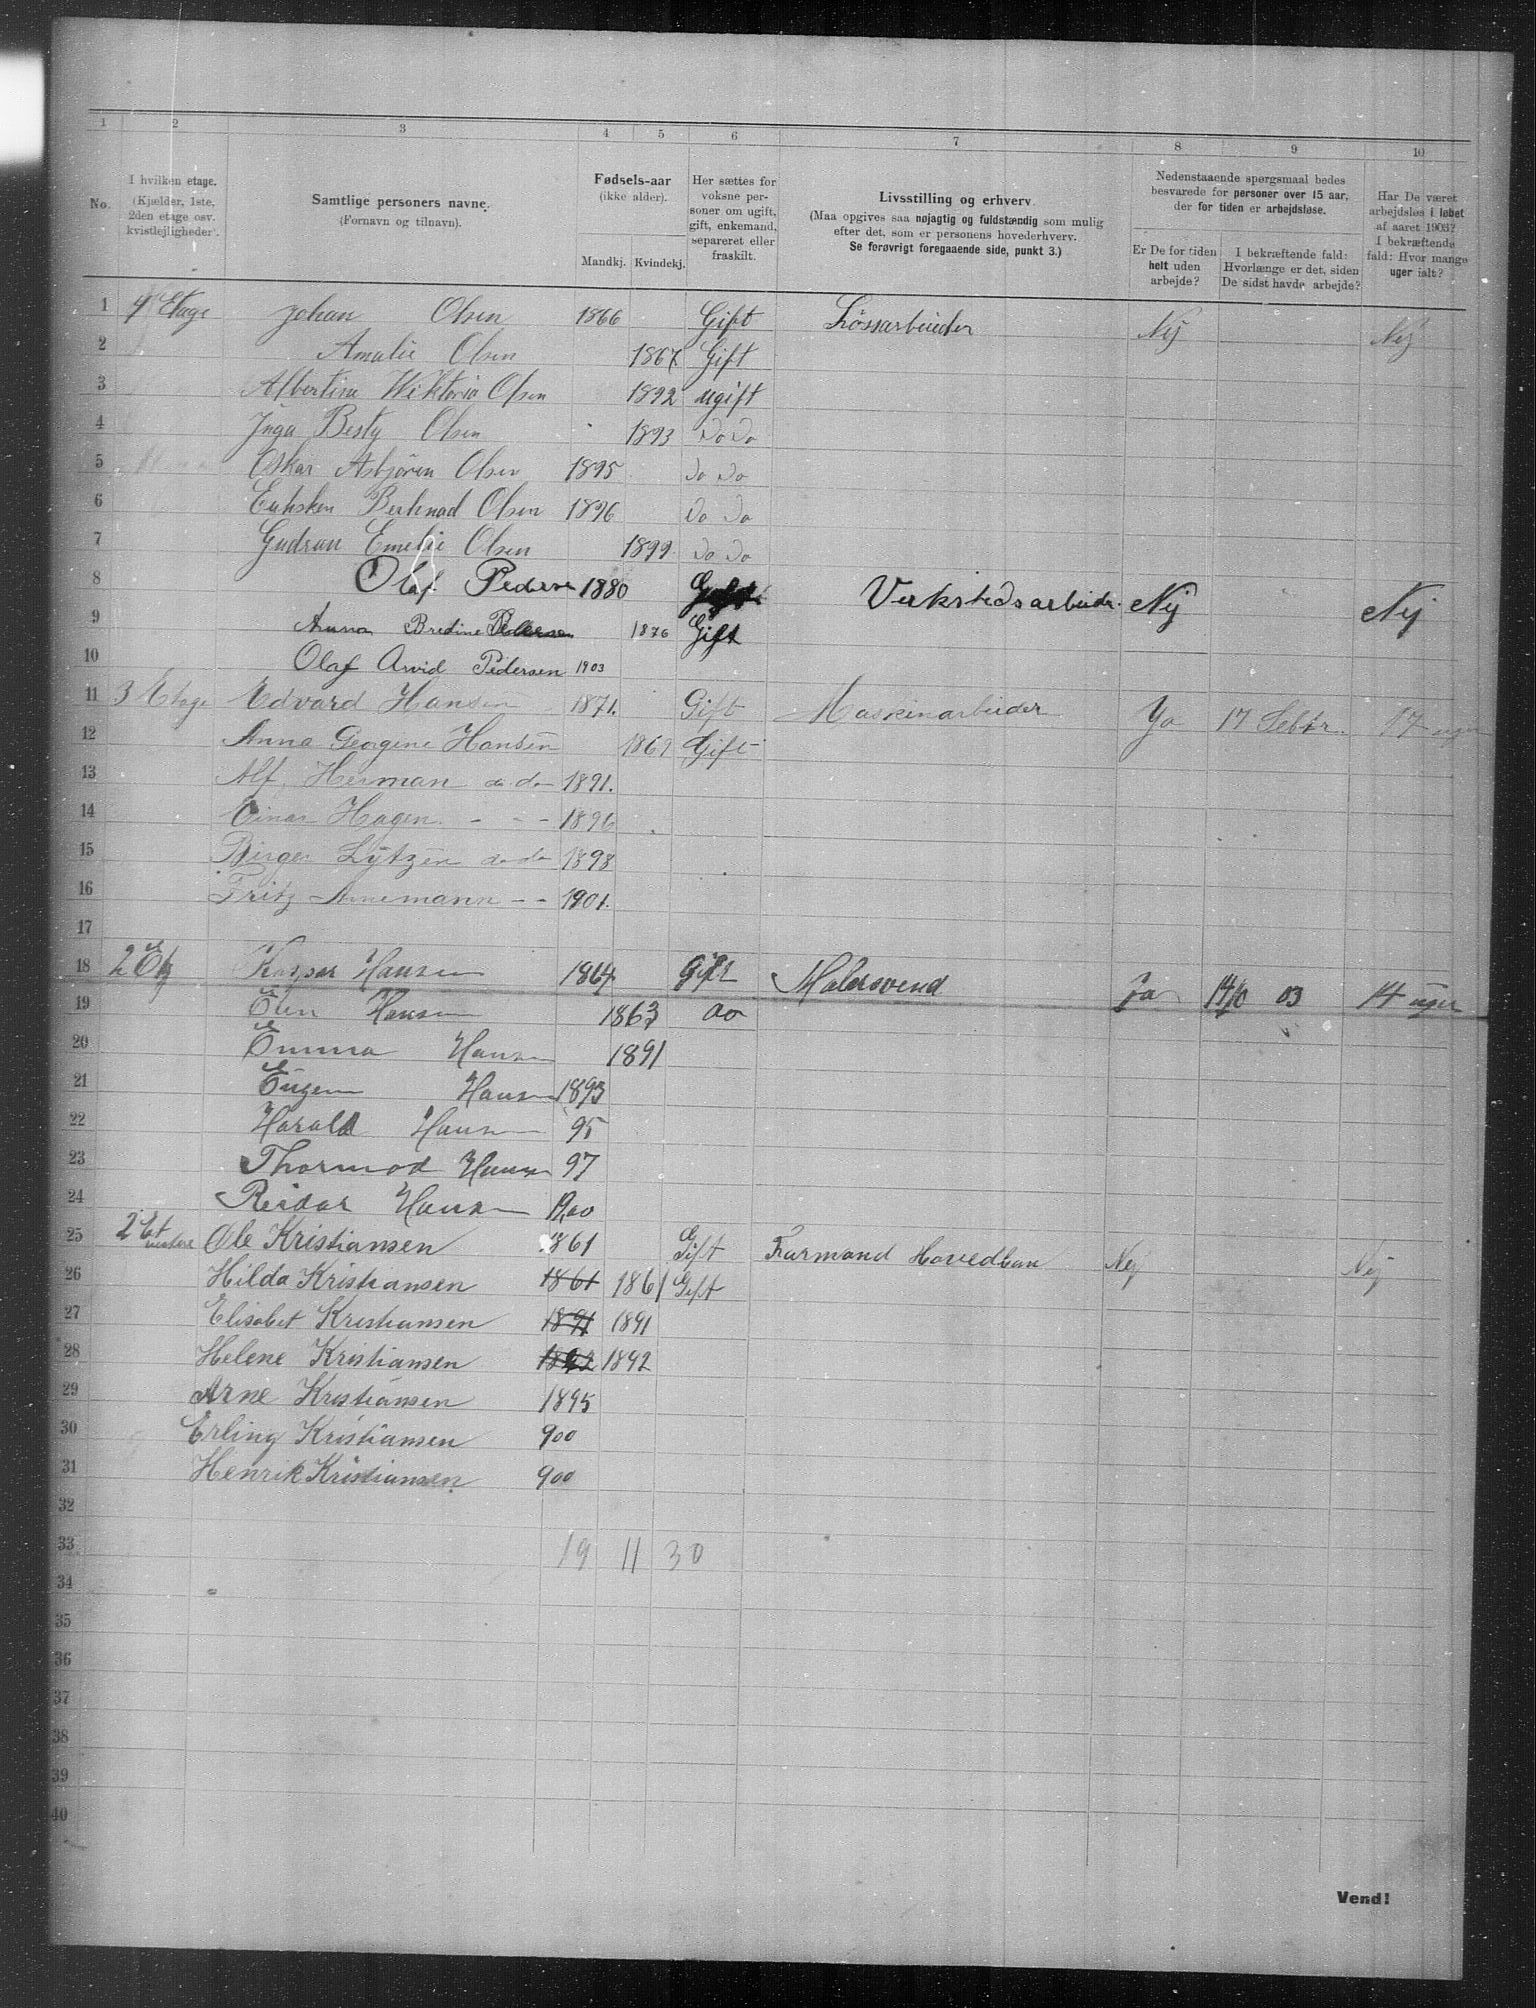 1 2 3 4 5 6 7 8 9 10
No.
I hvilken etage.
(Kjælder, 1ste,
2den etage osv.
kvistlejligheder.
Samtlige personers navne.
(Fornavn og tilnavn).
Fødsels-aar
(ikke alder).
Mandkj. Kvindekj.
Her sættes for
voksne per-
soner om ugift,
gift, enkemand,
separeret eller
fraskilt.
Livsstilling og erhverv.
(Maa opgives saa nøjagtig og fuldstændig som mulig
efter det, som er personens hovederhverv.
Se forøvrigt foregaaende side, punkt 3.)
Nedenstaaende spørgsmaal bedes
besvarede for personer over 15 aar,
der for tiden er arbejdsløse.
Er De for tiden
helt uden
arbejde?
I bekræftende fald:
Hvorlænge er det, siden
De sidst havde arbejde?
Har De været
arbejdsløs i løbet
af aaret 1903?
I bekræftende
fald: Hvor mange
uger ialt?
1 4 Etage Johan Olsen 1866 Gift Løssarbeider Nej Nej
2 Amalie Olsen 1867 Gift
3 Albertine Wiktoria Olsen 1892 ugift
4 Inga Besty Olsen 1893 Do Do
5 Oskar Asbjören Olsen 1895 Do Do
6 Olsen 1896 Do Do
7 Gudrun Emelie Olsen 1899 Do Do
8 Olaf Pedersen 1880 Gift Verkstedsarbeider. Nej Nej
9 Anna Bredine Pedersen 1876 Gift
10 Olaf Arvid Pedersen 1903
11 3 Etage Edvard Hansen 1871. Gift Maskinarbeider Ja 17 Sebtr. 17 uger
12 Anna Georgine Hansen 1869 Gift
13 Alf. Herman do do 1891.
14 Einar Hagen - - - 1896
15 Birger Lytzen do do 1898
16 Fritz Annemann - - 1901.
17
18 2 Etg Kaspar Hansen 1864 Gift Malersvend Ja 14/10 03 14 uger
19 Elen Hansen 1863 do
20 Emma Hansen 1891
21 Eugen Hansen 1893
22 Harald Hansen 95
23 Thormod Hansen 97
24 Reidar Hansen 1900
25 2 Et Ole Kristiansen 1861 Gift Formand Hovedban Nej Nej
26 Hilda Kristiansen 1861 1861 Gift
27 Elisabet Kristiansen 1891 1891
28 Helene Kristiansen 1892 1892
29 Arne Kristiansen 1895
30 Erling Kristiansen 900
31 Henrik Kristiansen 900
32
33 19 11 30
34
35
36
37
38
39
40
Vend!